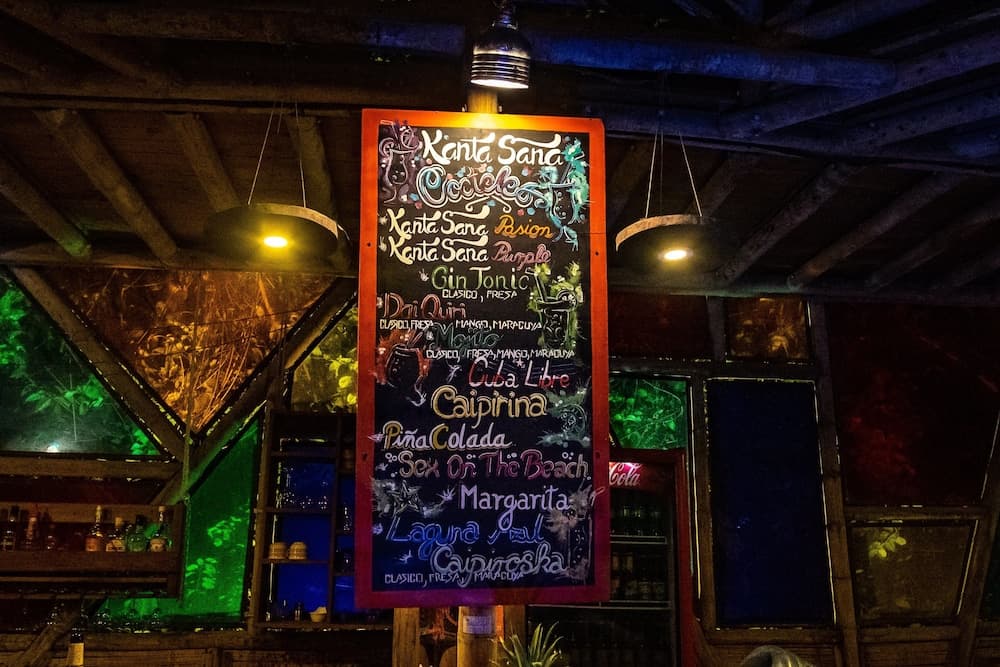 Kanta Sana
Cocteles
Kanta Sana Pasion
Kanta Sana Purple
Gin Tonic
CLASICO, FRESA
Dai Quiri
CLASICO, FRESA, MANGO, MARACUYA
Mojito
CLASICO, FRESA, MANGO, MARACUYA
Cuba Libre
Caipirina
Piña Colada
Sex On The Beach
Cola
Margarita
Laguna Azul
Caipiroska
CLASICO, FRESA, MARACUYA